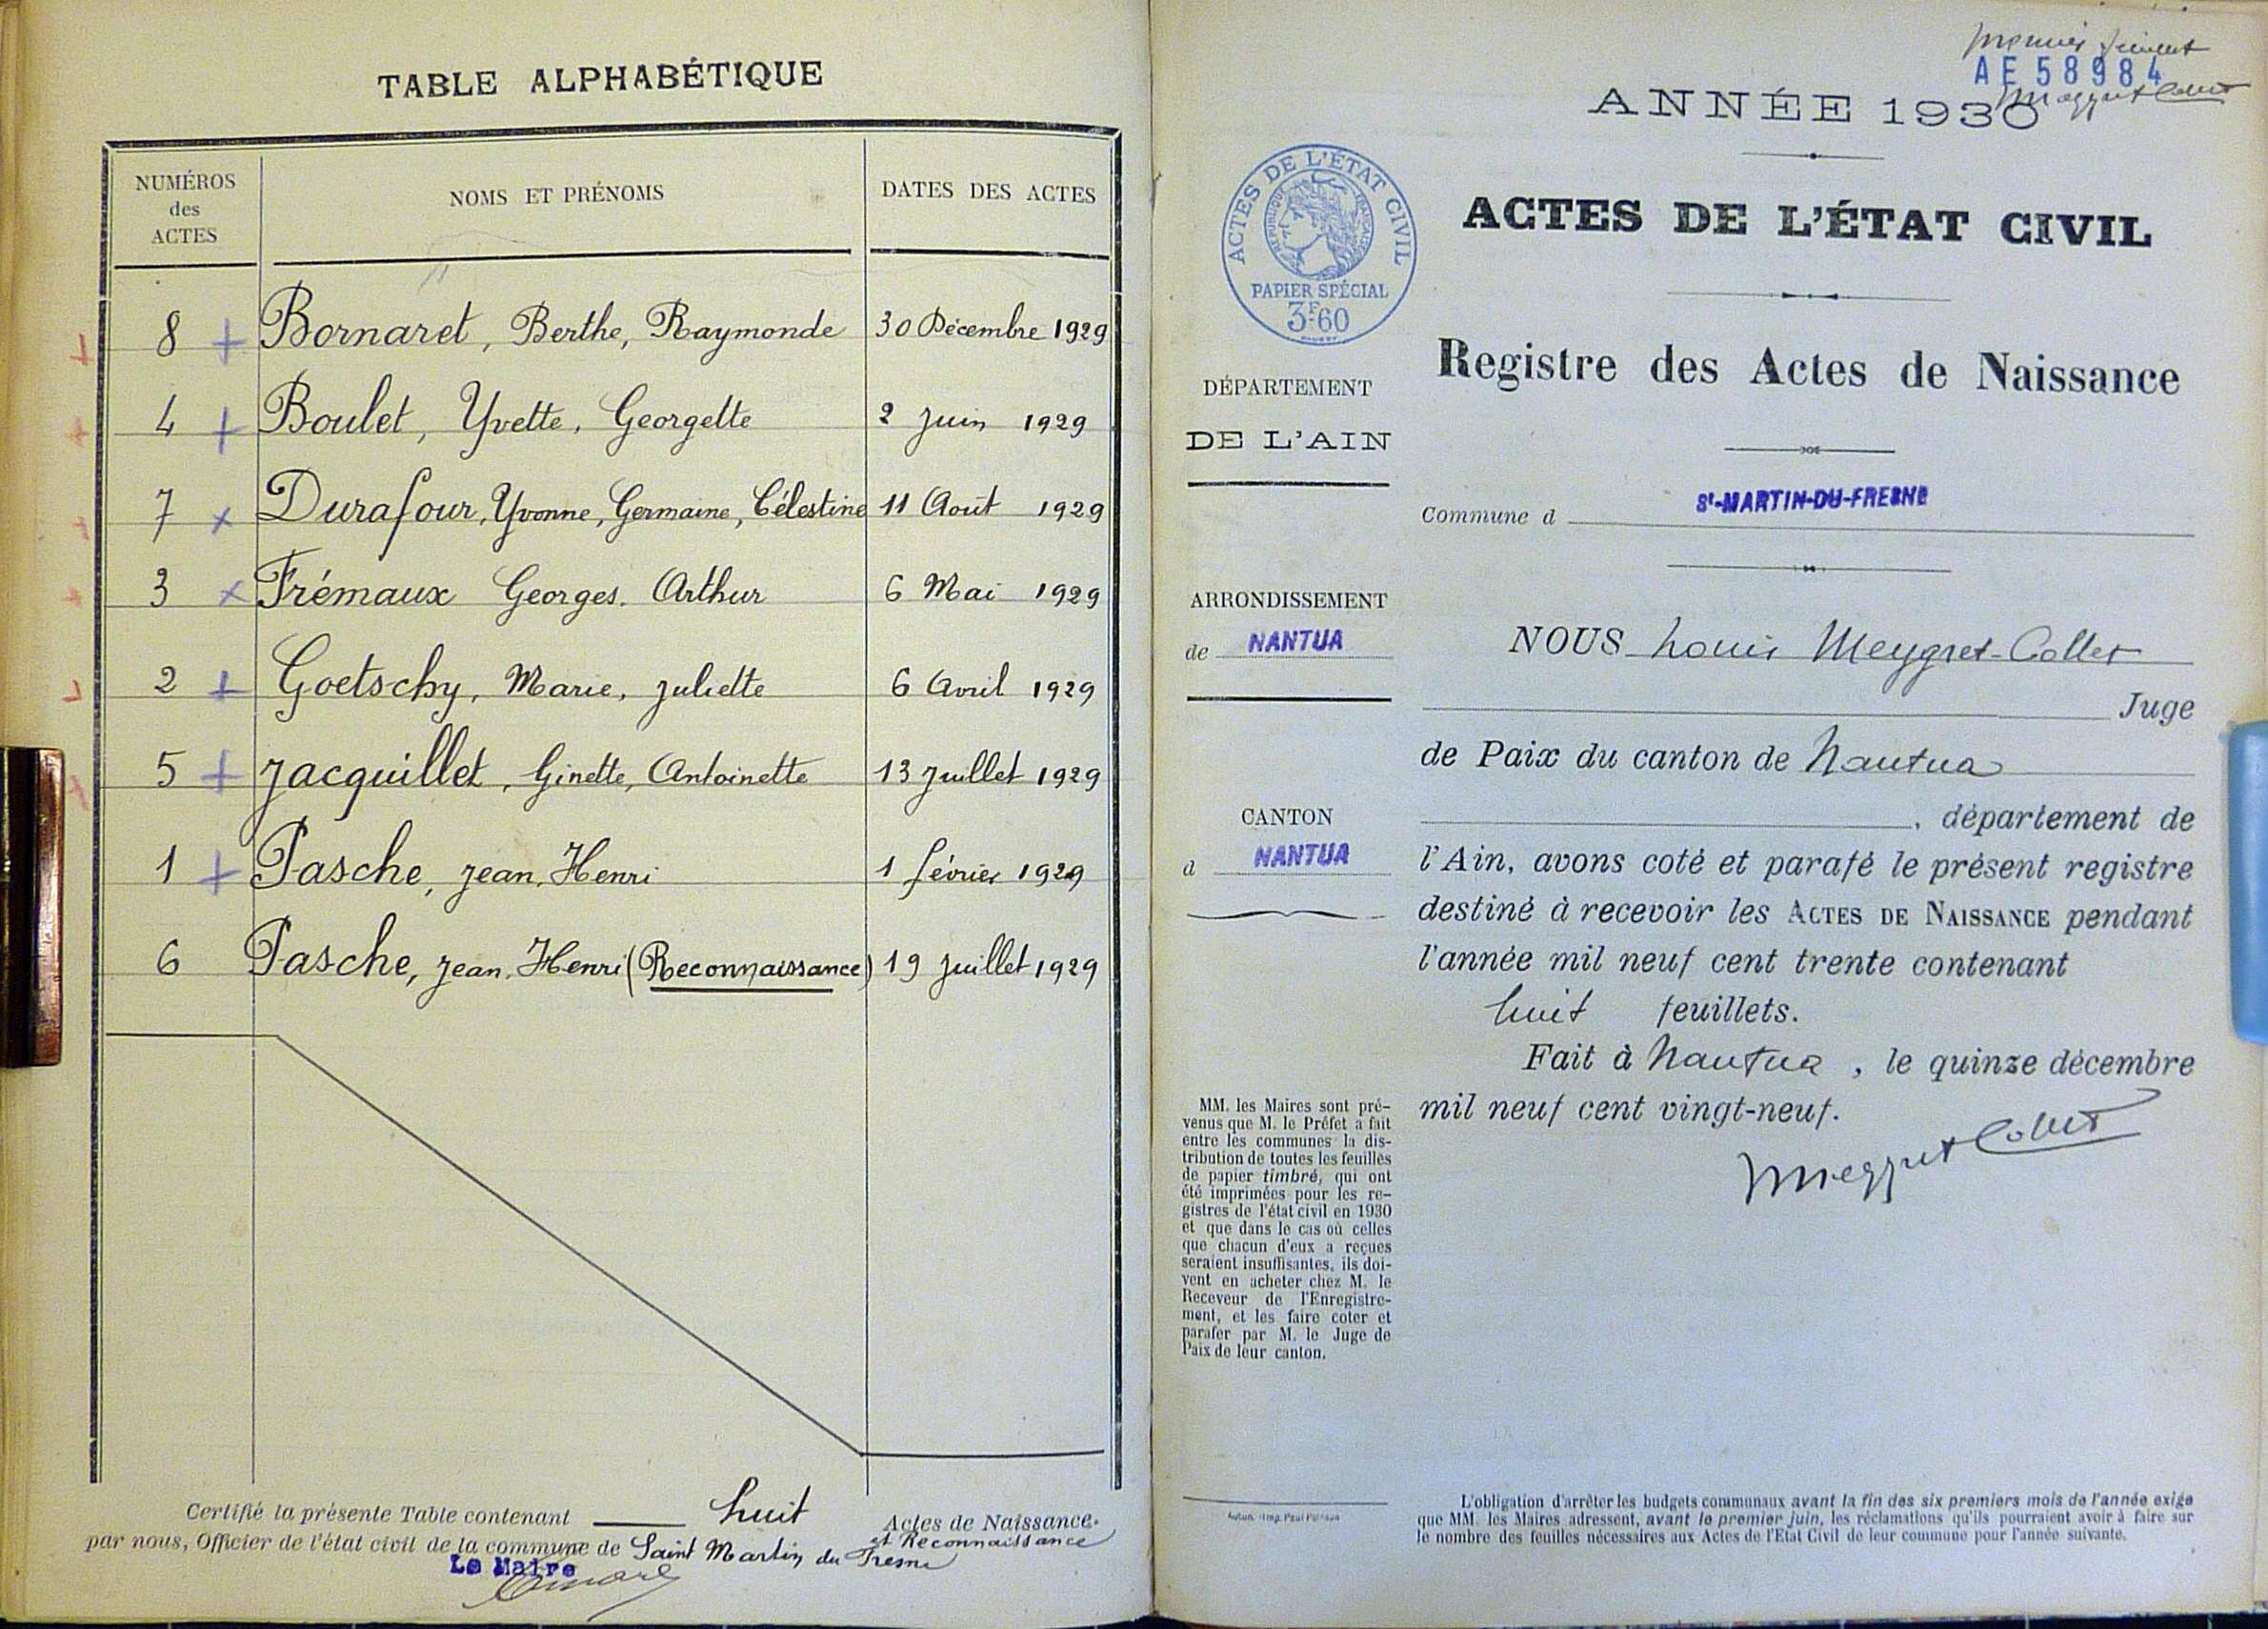 TABLE ALPHABÉTIQUE
NUMÉROS
des
ACTES
NOMS ET PRÉNOMS
DATES DES ACTES
8 Bornaret, Berthe, Raymonde 30 Décembre 1929
4 Boulet, Yvette, Georgette 2 Juin 1929
7 Durafour, Yvonne, Germaine, Célestine 11 Août 1929
3 Frémaux Georges. Arthur 6 Mai 1929
2 Goetschy, Marie, Juliette 6 Avril 1929
5 Jacquillet, Ginette, Antoinette 13 Juillet 1929
1 Pasche, Jean, Henri 1 février 1929
6 Pasche, Jean, Henri (Reconnaissance) 19 Juillet 1929
Certifié la présente Table contenant huit Actes de Naissance.
et Reconnaissance
par nous, Officier de l'état civil de la commune de Saint Martin du Fresne
Le Maire
premier feuillet
AE 58984
Meygret Collet
ANNÉE 1930
ACTES DE L'ÉTAT CIVIL
RÉPUBLIQUE FRANÇAISE
PAPIER SPÉCIAL
3F.60
ACTES DE L'ÉTAT CIVIL
Registre des Actes de Naissance
DÉPARTEMENT
DE L'AIN
Commune d St-MARTIN-DU-FRESNE
ARRONDISSEMENT
de NANTUA
CANTON
d NANTUA
NOUS Louis Meygret-Collet
Juge
de Paix du canton de Nantua
, département de
l'Ain, avons coté et parafé le présent registre
destiné à recevoir les ACTES DE NAISSANCE pendant
l'année mil neuf cent trente contenant
huit feuillets.
Fait à Nantua, le quinze décembre
mil neuf cent vingt-neuf.
Meygret Collet
MM. les Maires sont pré-
venus que M. le Préfet a fait
entre les communes la dis-
tribution de toutes les feuilles
de papier timbré, qui ont
été imprimées pour les re-
gistres de l'état civil en 1930
et que dans le cas où celles
que chacun d'eux a reçues
seraient insuffisantes, ils doi-
vent en acheter chez M. le
Receveur de l'Enregistre-
ment, et les faire coter et
parafer par M. le Juge de
Paix de leur canton.
L'obligation d'arrêter les budgets communaux avant la fin des six premiers mois de l'année exige
que MM. les Maires adressent, avant le premier juin, les réclamations qu'ils pourraient avoir à faire sur
le nombre des feuilles nécessaires aux Actes de l'Etat Civil de leur commune pour l'année suivante.